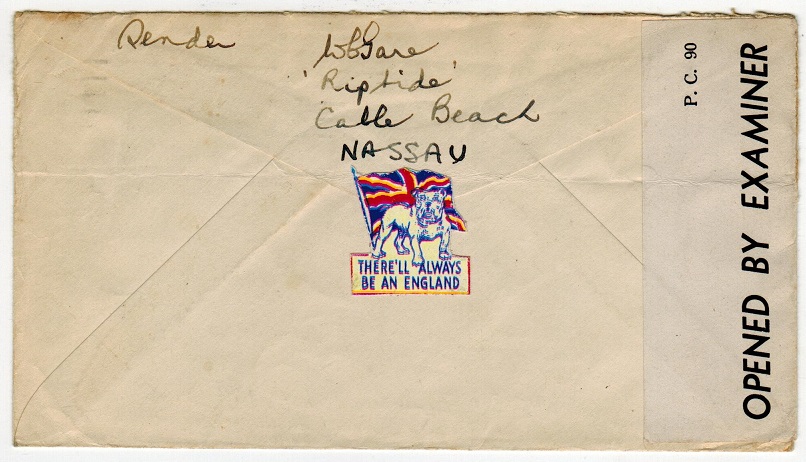 Sender
'Riptide'
Cable Beach
NASSAU
THERE'LL ALWAYS
BE AN ENGLAND
P. C. 90
OPENED BY EXAMINER